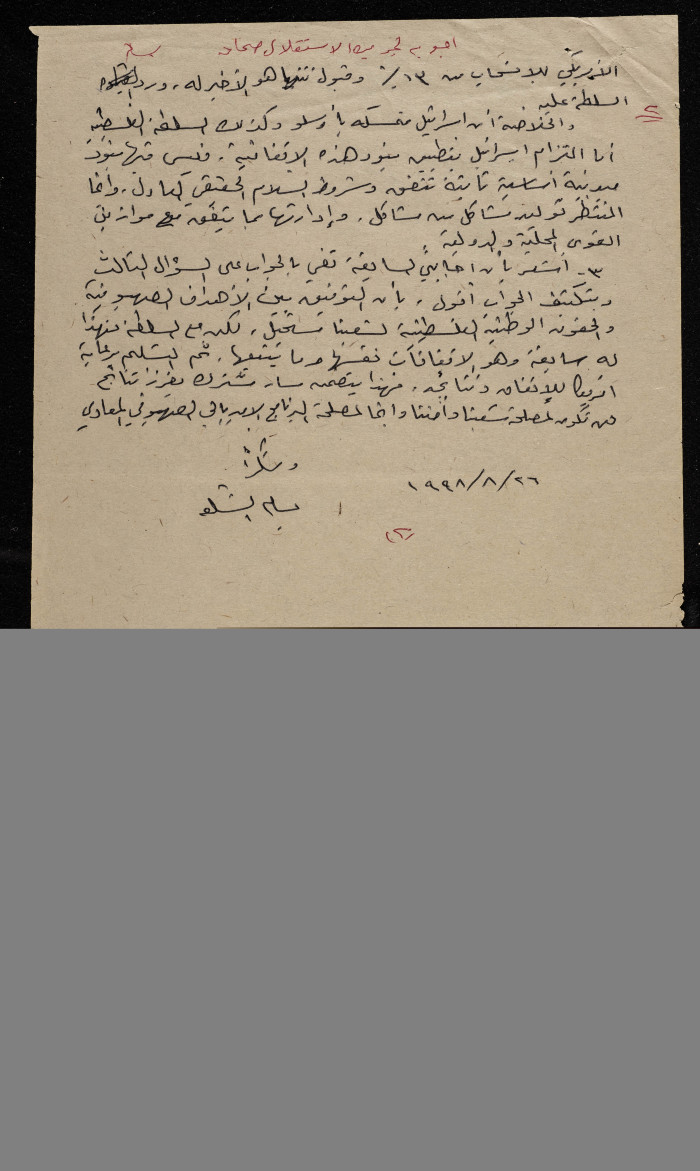 اجوبه لجريدة الاستقلال صحافه بسام
الأمريكي للانسحاب من ١٣٪ وقبول نتنياهو الأخير له، ورد
السلطة عليه
٢
والخلاصة أن اسرائيل متمسكه بأوسلو وكذلك السلطة الفلسطينية
أما التزام اسرائيل بتطبيق بنود هذه الاتفاقية، فليس فيها بنود
مبدئية أساسية ثابتة تتفق وشروط السلام الحقيقي العادل، وانما
المنتظر توليد مشاكل من مشاكل، وإدارتها بما يتفق مع موازين
القوى المحلية والدولية
٣ـ أشعر بأن اجابتي السابقة تفي بالجواب على السؤال الثالث
وبتكثيف الجواب أقول، بأن التوفيق بين الأهداف الصهيونية
والحقوق الوطنية الفلسطينية لشعبنا مستحيل، لكن مع السلطة فهذا
له سابقة وهو الاتفاقات نفسها وما يتبعها، ثم التسليم برعاية
امريكا للإتفاق ونتائجه، فهذا يتضمن مسار مشترك يفرز نتائج
لن تكون لمصلحة شعبنا وأمتنا وانما لمصلحة البرنامج الامبريالي الصهيوني المعادي
وشكراً
٢٦/٨/١٩٩٨
بسام الشكعه
(٢)